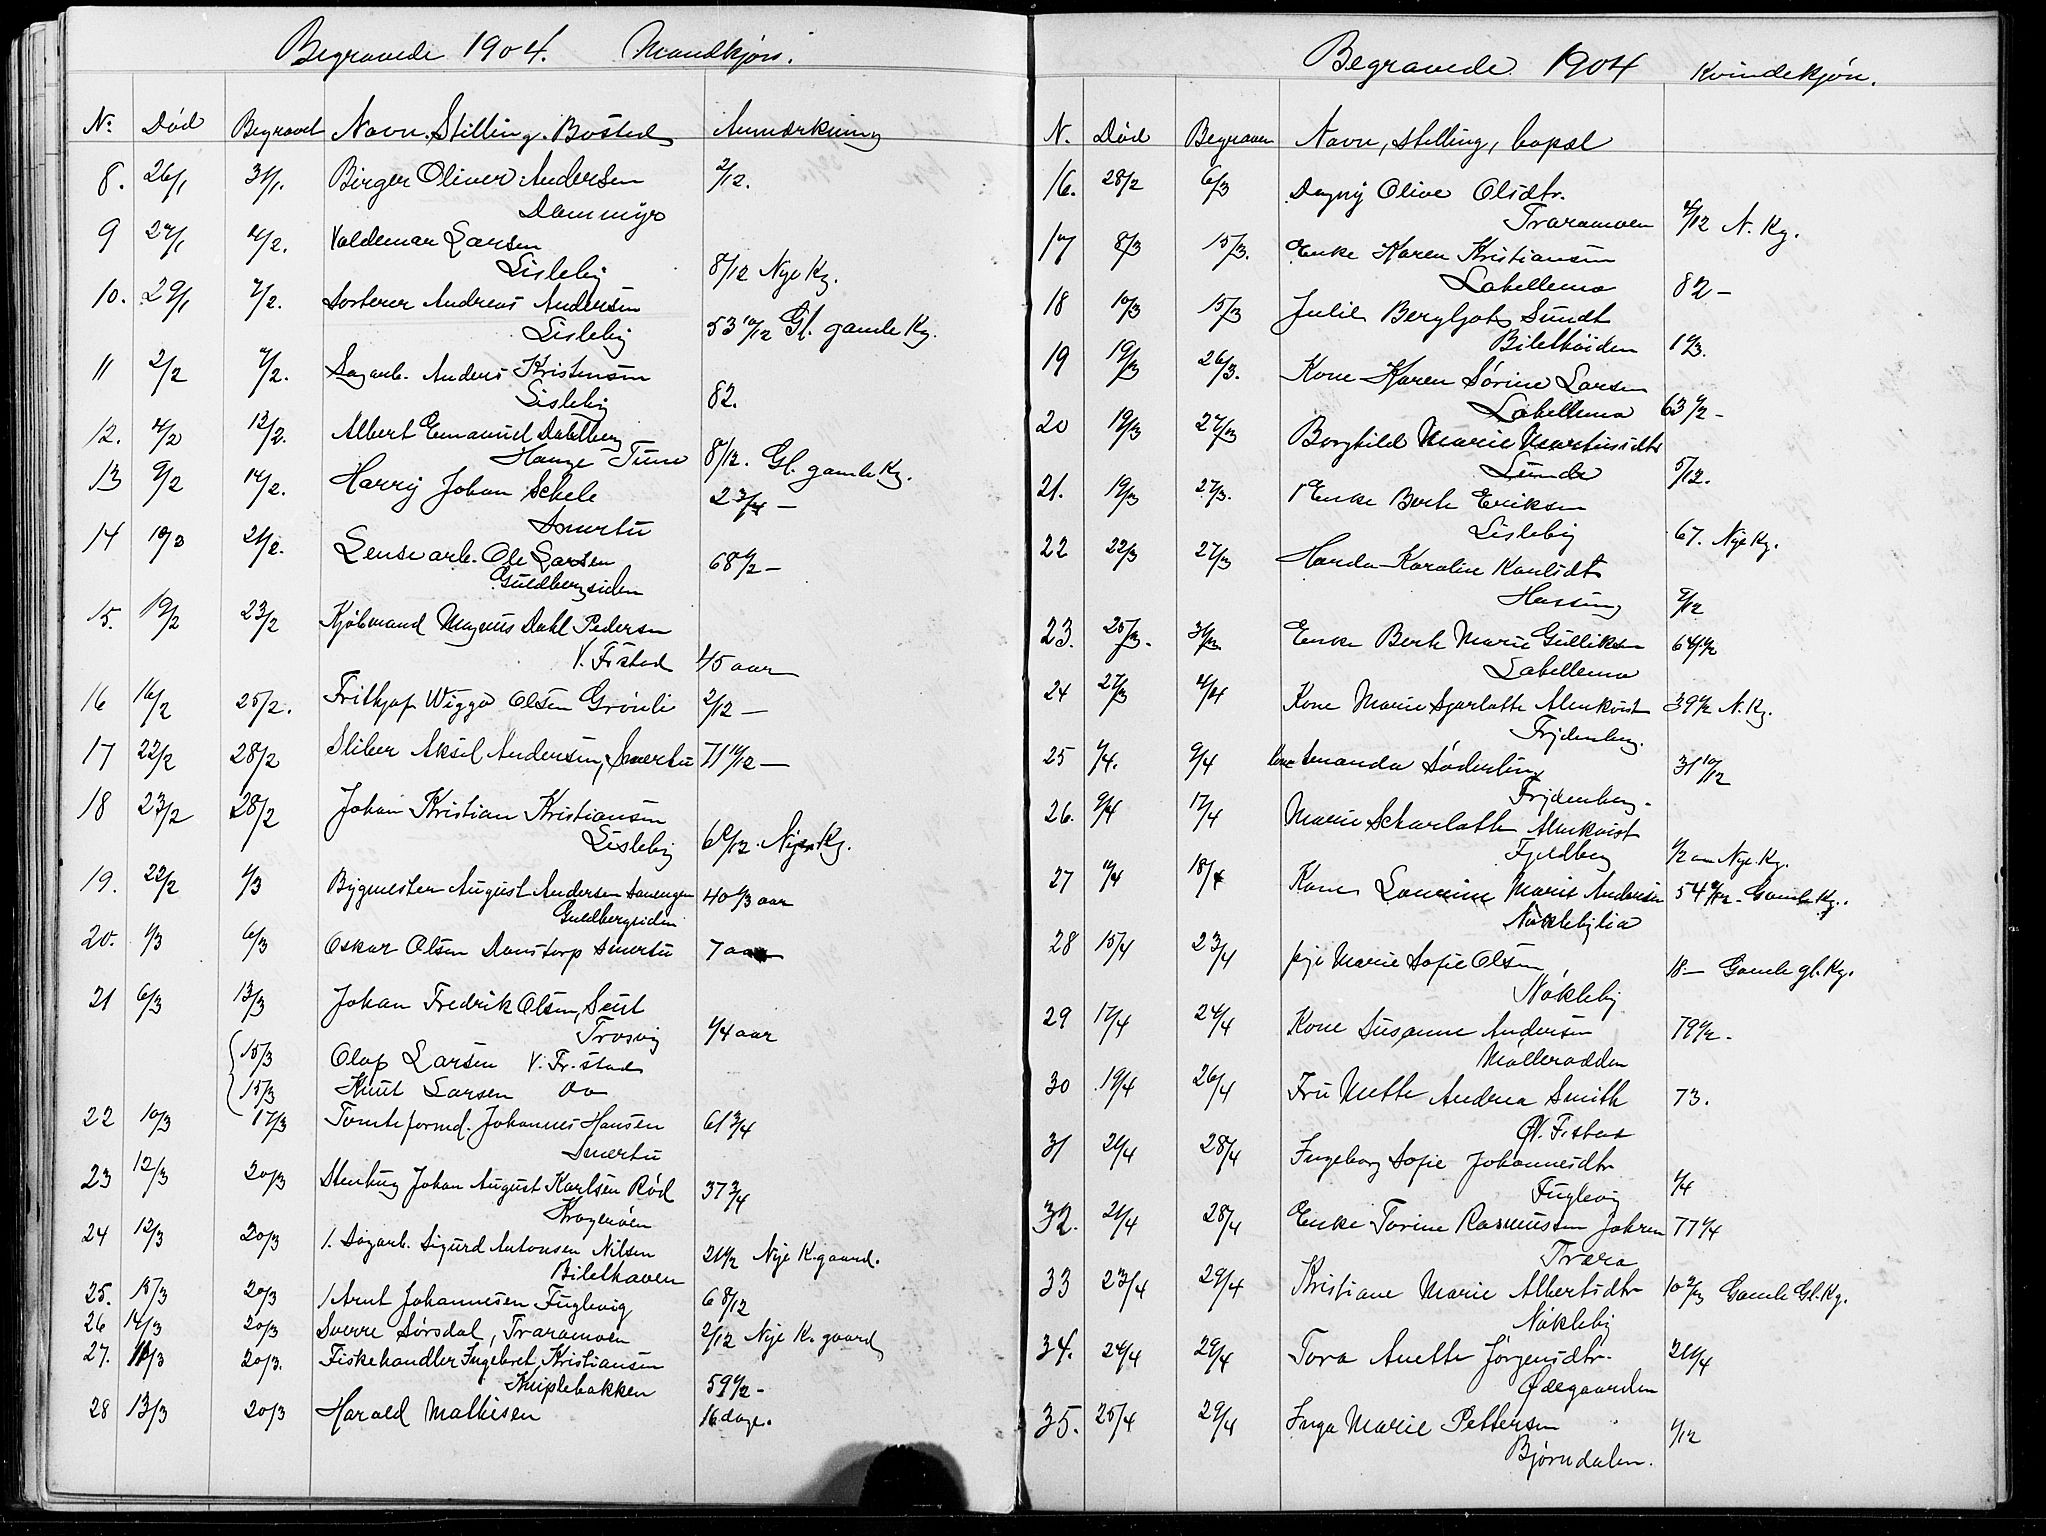 Begravede 1904. Mandkjøn.
No. Død Begravet Navn. Stilling. Bosted Anmærkning
8. 26/1 31/1. Birger Oliver Andersen 2/12.
Dammyr
9 27/1 4/2. Valdemar Larsen
Lisleby 8/12 Nye Kg.
10. 29/1 7/2. Sorterer Andreas Andersen
Lisleby 53 10/12 Gl. gamle Kg.
11 2/2 7/2. Sagarb. Anders Kristensen
Lisleby 82.
12. 4/2 13/2. Albert Emanuel Dahlberg
Hauge Tune 8/12. Gl. gamle Kg.
13 9/2 14/2. Harry Johan Schele 2 3/4 —
Smertu
14 21/2. Lensearb. Ole Larsen 68 1/2 —
Guldbergsiden
15. 19/2 23/2 Kjøbmand Magnus Dahl Pedersen
V. Fr.stad 45 aar
16 16/2 25/2. Frithjof Wiggo Olsen Grønli 2/12 —
17 22/2 28/2 Sliber Aksel Andersen, Smertu 71 11/12 —
18 23/2 28/2 Johan Kristian Kristiansen
Lisleby Nye Kg.
19. 22/2 1/3 Bygmester August Andersen 40 1/3 aar
Guldbergsiden
20. 1/3 6/3 Oskar Olsen Damstorp Smertu 7 aar
21 6/3 13/3 Johan Fredrik Olsen, Seut
Trosvig 1/4 aar
15/3 Olaf Larsen V. Fr.stad
15/3 Knut Larsen Do
22 10/3 17/3 Tomteformd. Johannes Hansen 61 3/4
Smertu
23 12/3 20/3 Stenhug Johan August Karlsen Rød 37 3/4
Krogenøen
24 12/3 20/3 1. Sagarb. Sigurd Antonsen Nilsen 21 1/2 Nye K.gaard.
Bilethaven
25. 15/3 20/3 / Arnt Johannesen Fuglevig 6 8/12
26 14/3 20/3 Sverre Sørsdal, Traramoen 2/12 Nye K. gaard
27. 11/3 20/3. Fiskehandler Ingebret Kristiansen
Kniplebakken 59 1/2 -
28 13/3 20/3 Harald Mathisen 16 dage.
Begravede 1904 Kvindekjøn.
N. Død Begraven Navn, stilling, bopæl
16. 28/2 6/3 Dagny Olive Olsdtr.
Traramoen 4/12 N. Kg.
17 8/3 15/3. Enke Karen Kristiansen
Labellemo 82 —
18 10/3 15/3 Julie Bergljot Sundt
Bilethøiden
19 19/3 26/3. Kone Karen Sørine Larsen
Labellemo 63 1/2 —
20 19/3 27/3 Borghild Marie Martinsdtr
Lunde 5/12.
21. 19/3 27/3. Enke Berthe Eriksen
Lisleby 67. Nye Kg.
22 22/3 27/3 Harda Karoline Karlsdt
Hassing
23. 25/3. 31/3 Enke Berthe Marie Gulliksen
Labellemo
24 27/3 4/4 Kone Marie Sjarlotte Almkvist 39 1/2 N. Kg.
Frydenberg.
25 4/4. 9/4 Kone Amanda Søderling 31 10/12
Frydenberg.
26. 9/4 17/4 Marie Scharlotte Almkvist
Fjeldberg 1/2 Nye Kg.
27 11/4 18/4 Kone Laurine Marie Andersen Gamle Kg.
Nøklebylia
28 15/4 23/4 pige Marie Sofie Olsen 18 — Gamle gl. Kg.
Nøkleby
29 17/4 24/4 Kone Susanne Andersen 79 1/2 -
Møllerodden
30 19/4 26/4 Fru Mette Andrea Smith 73.
V. Fr.stad
31 21/4 28/4 Ingeborg Sofie Johannesdtr
Fuglevig 1/4
32. 21/4 28/4 Enke Torine Rasmussen 77 1/4
Trara
33 23/4 29/4 Kristiane Marie Albertsdtr 10 2/3 Gamle Gl. Kg.
Nøkleby
34. 24/4 29/4 Tora Anette Jørgensdtr. 21 1/4
Ødegaarden
35. 25/4 29/4 Inga Marie Pettersen 1/12
Bjørndalen.